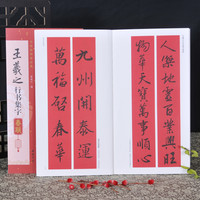 王羲之
行书集字
春联
人傑地靈百業興旺
物華天寶萬事順心
九州開泰運
萬福啓春華